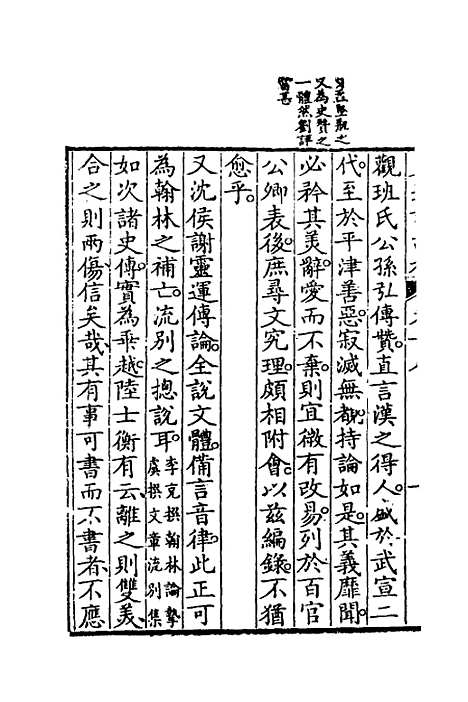 又為史贊之
一體然劉評
當甚
觀班氏公孫弘傳贊直言漢之得人盛於武宣二
代至於平津善惡寂滅無覩持論如是其義靡聞
必矜其美辭愛而不棄則宜微有改易列於百官
公卿表後庶尋文究理頗相附會以茲編錄不猶
愈乎
又沈侯謝靈運傳論全說文體備言音律此正可
為翰林之補亡流別之摠說耳李充撰翰林論摯虞撰文章流別集
如次諸史傳實為乖越陸士衡有云離之則雙美
合之則兩傷信矣哉其有事可書而不書者不應